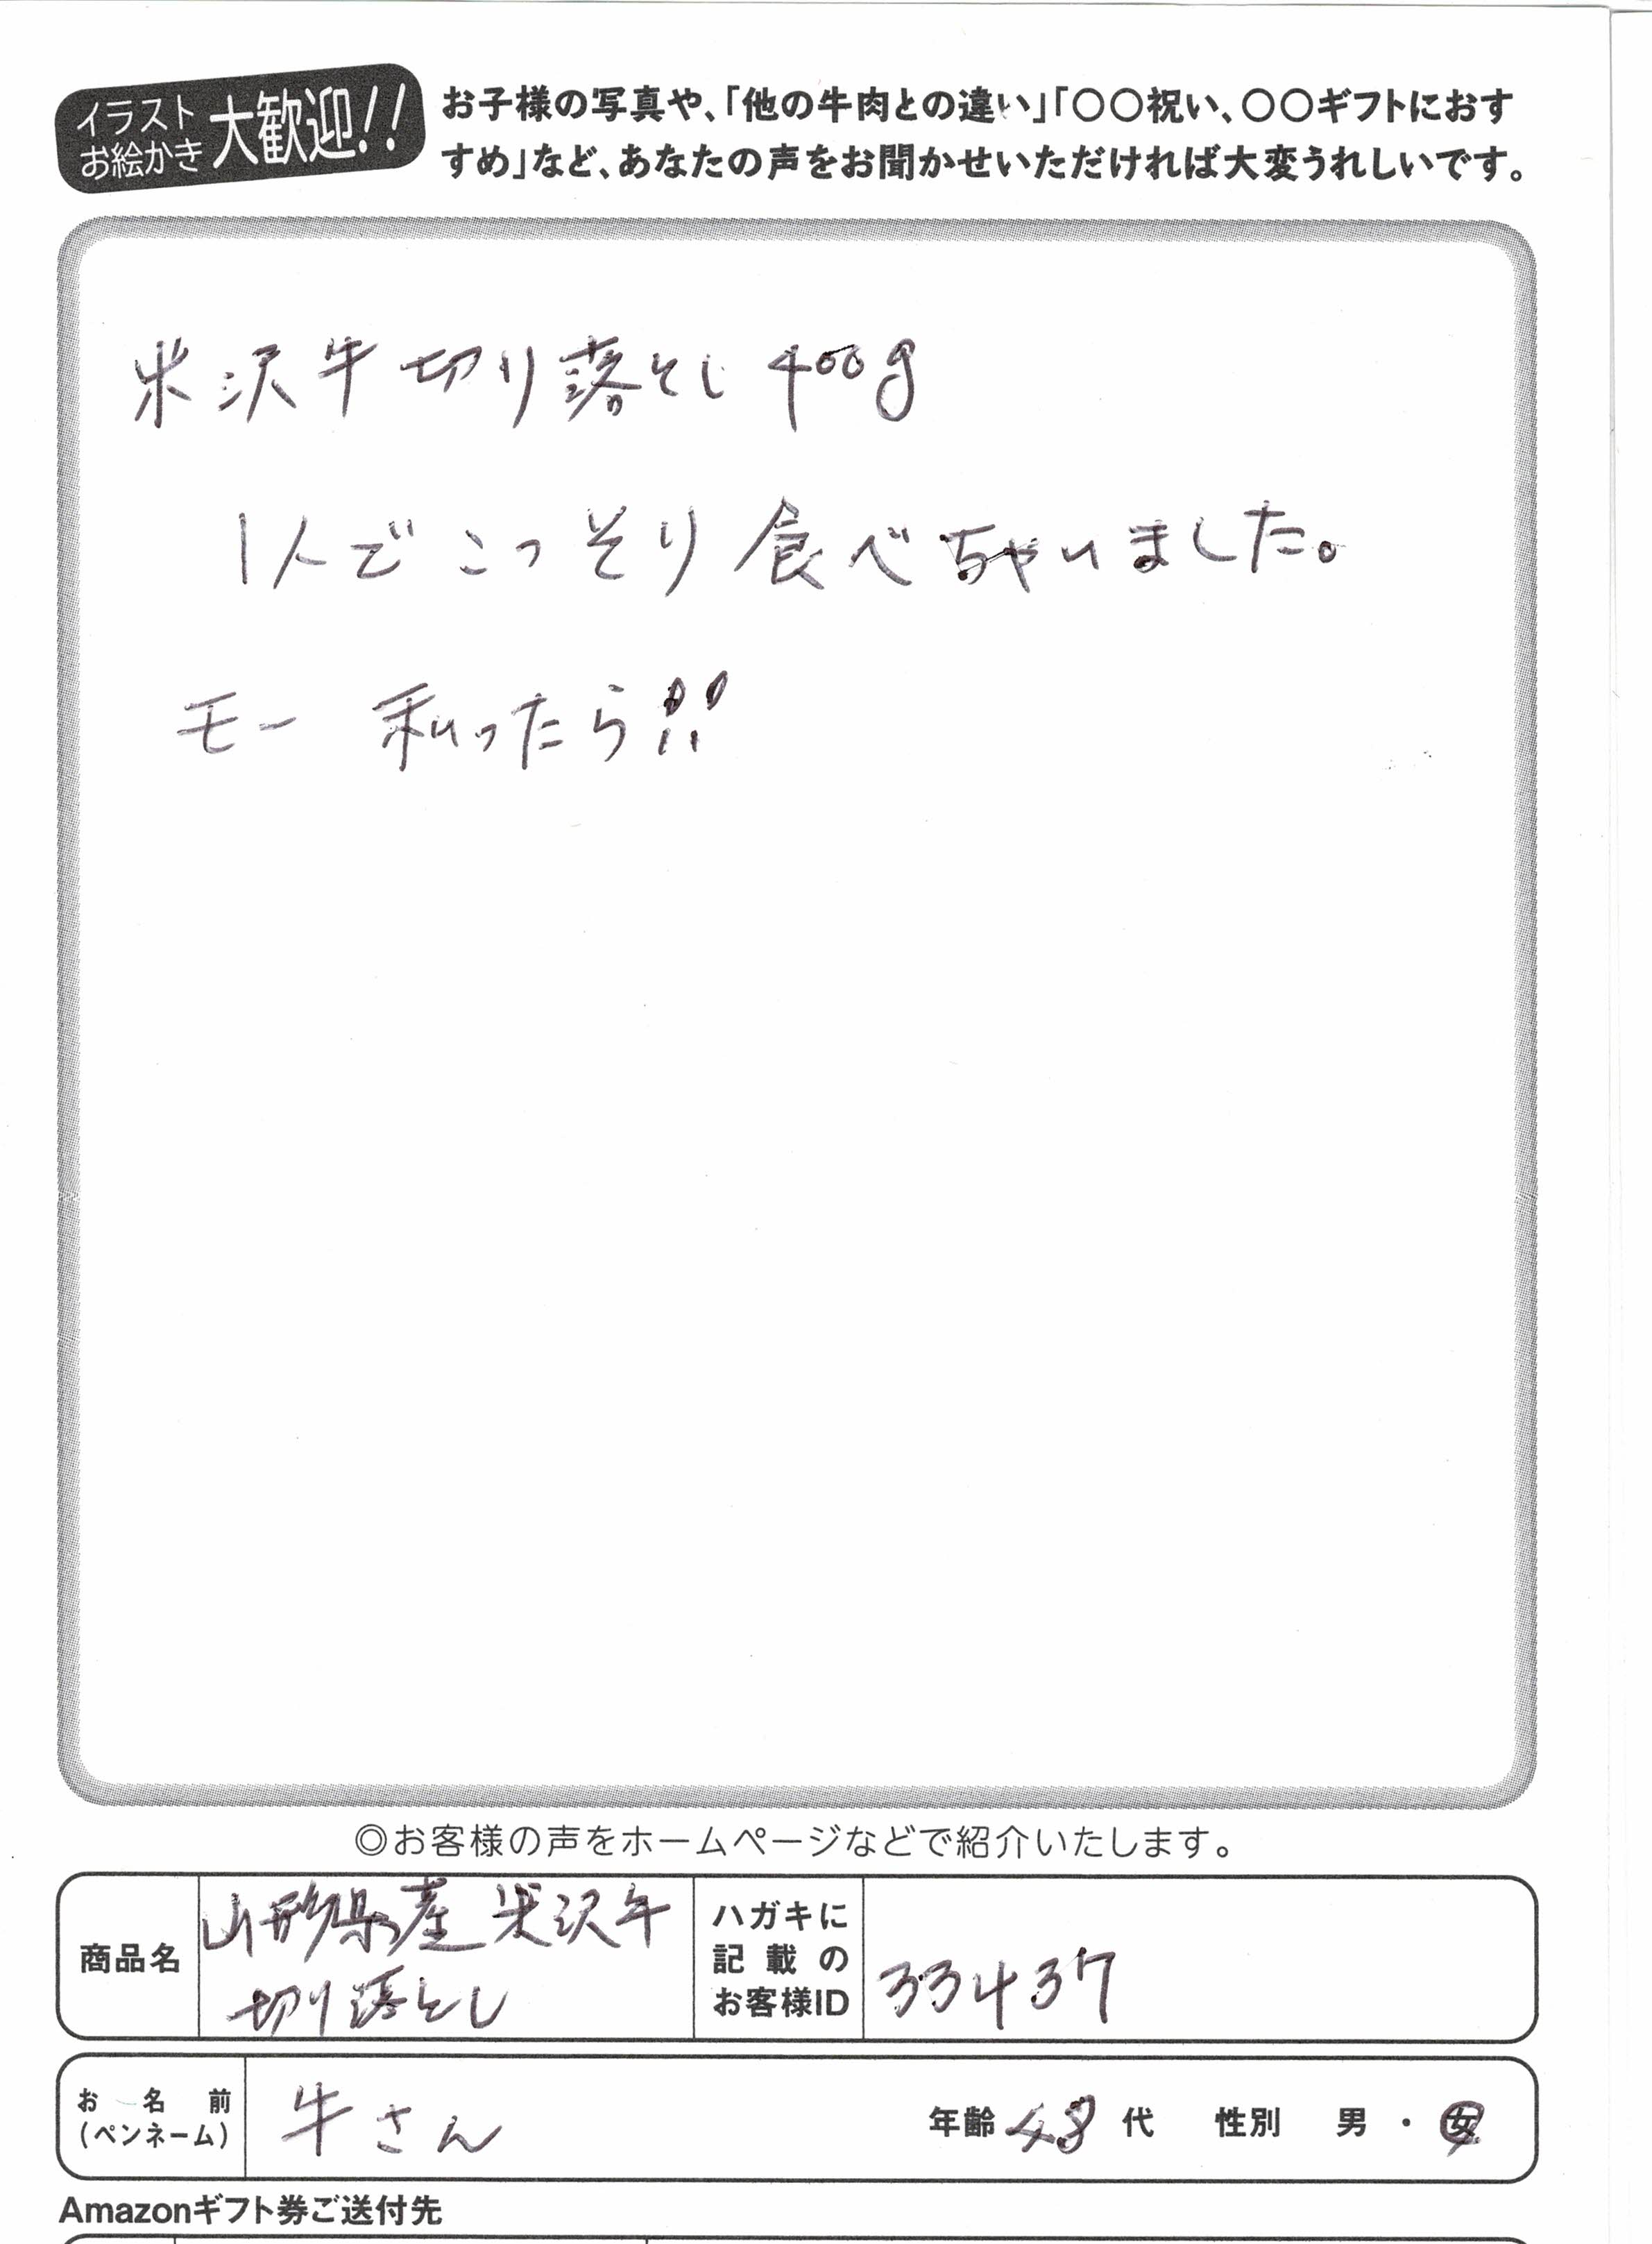 イラスト
お絵かき
大歓迎!!
お子様の写真や、「他の牛肉との違い」「〇〇祝い、〇〇ギフトにおす
すめ」など、あなたの声をお聞かせいただければ大変うれしいです。
米沢牛切り落とし400g
1人でこっそり食べちゃいました。
モー 私ったら!!
◎お客様の声をホームページなどで紹介いたします。
商品名
山形県産米沢牛
切り落とし
ハガキに
記載の
お客様ID
33437
お名前
(ペンネーム)
牛さん
年齢 48 代 性別 男・女
Amazonギフト券ご送付先